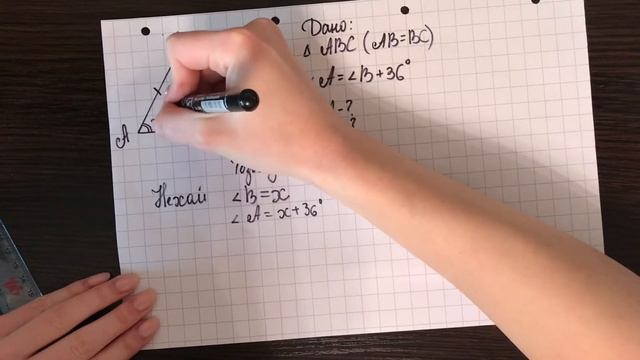 Дано:
Δ ABC (AB=BC)
A = ∠B + 36°
- ?
?
A
Нехай ∠B = x
∠A = x + 36°